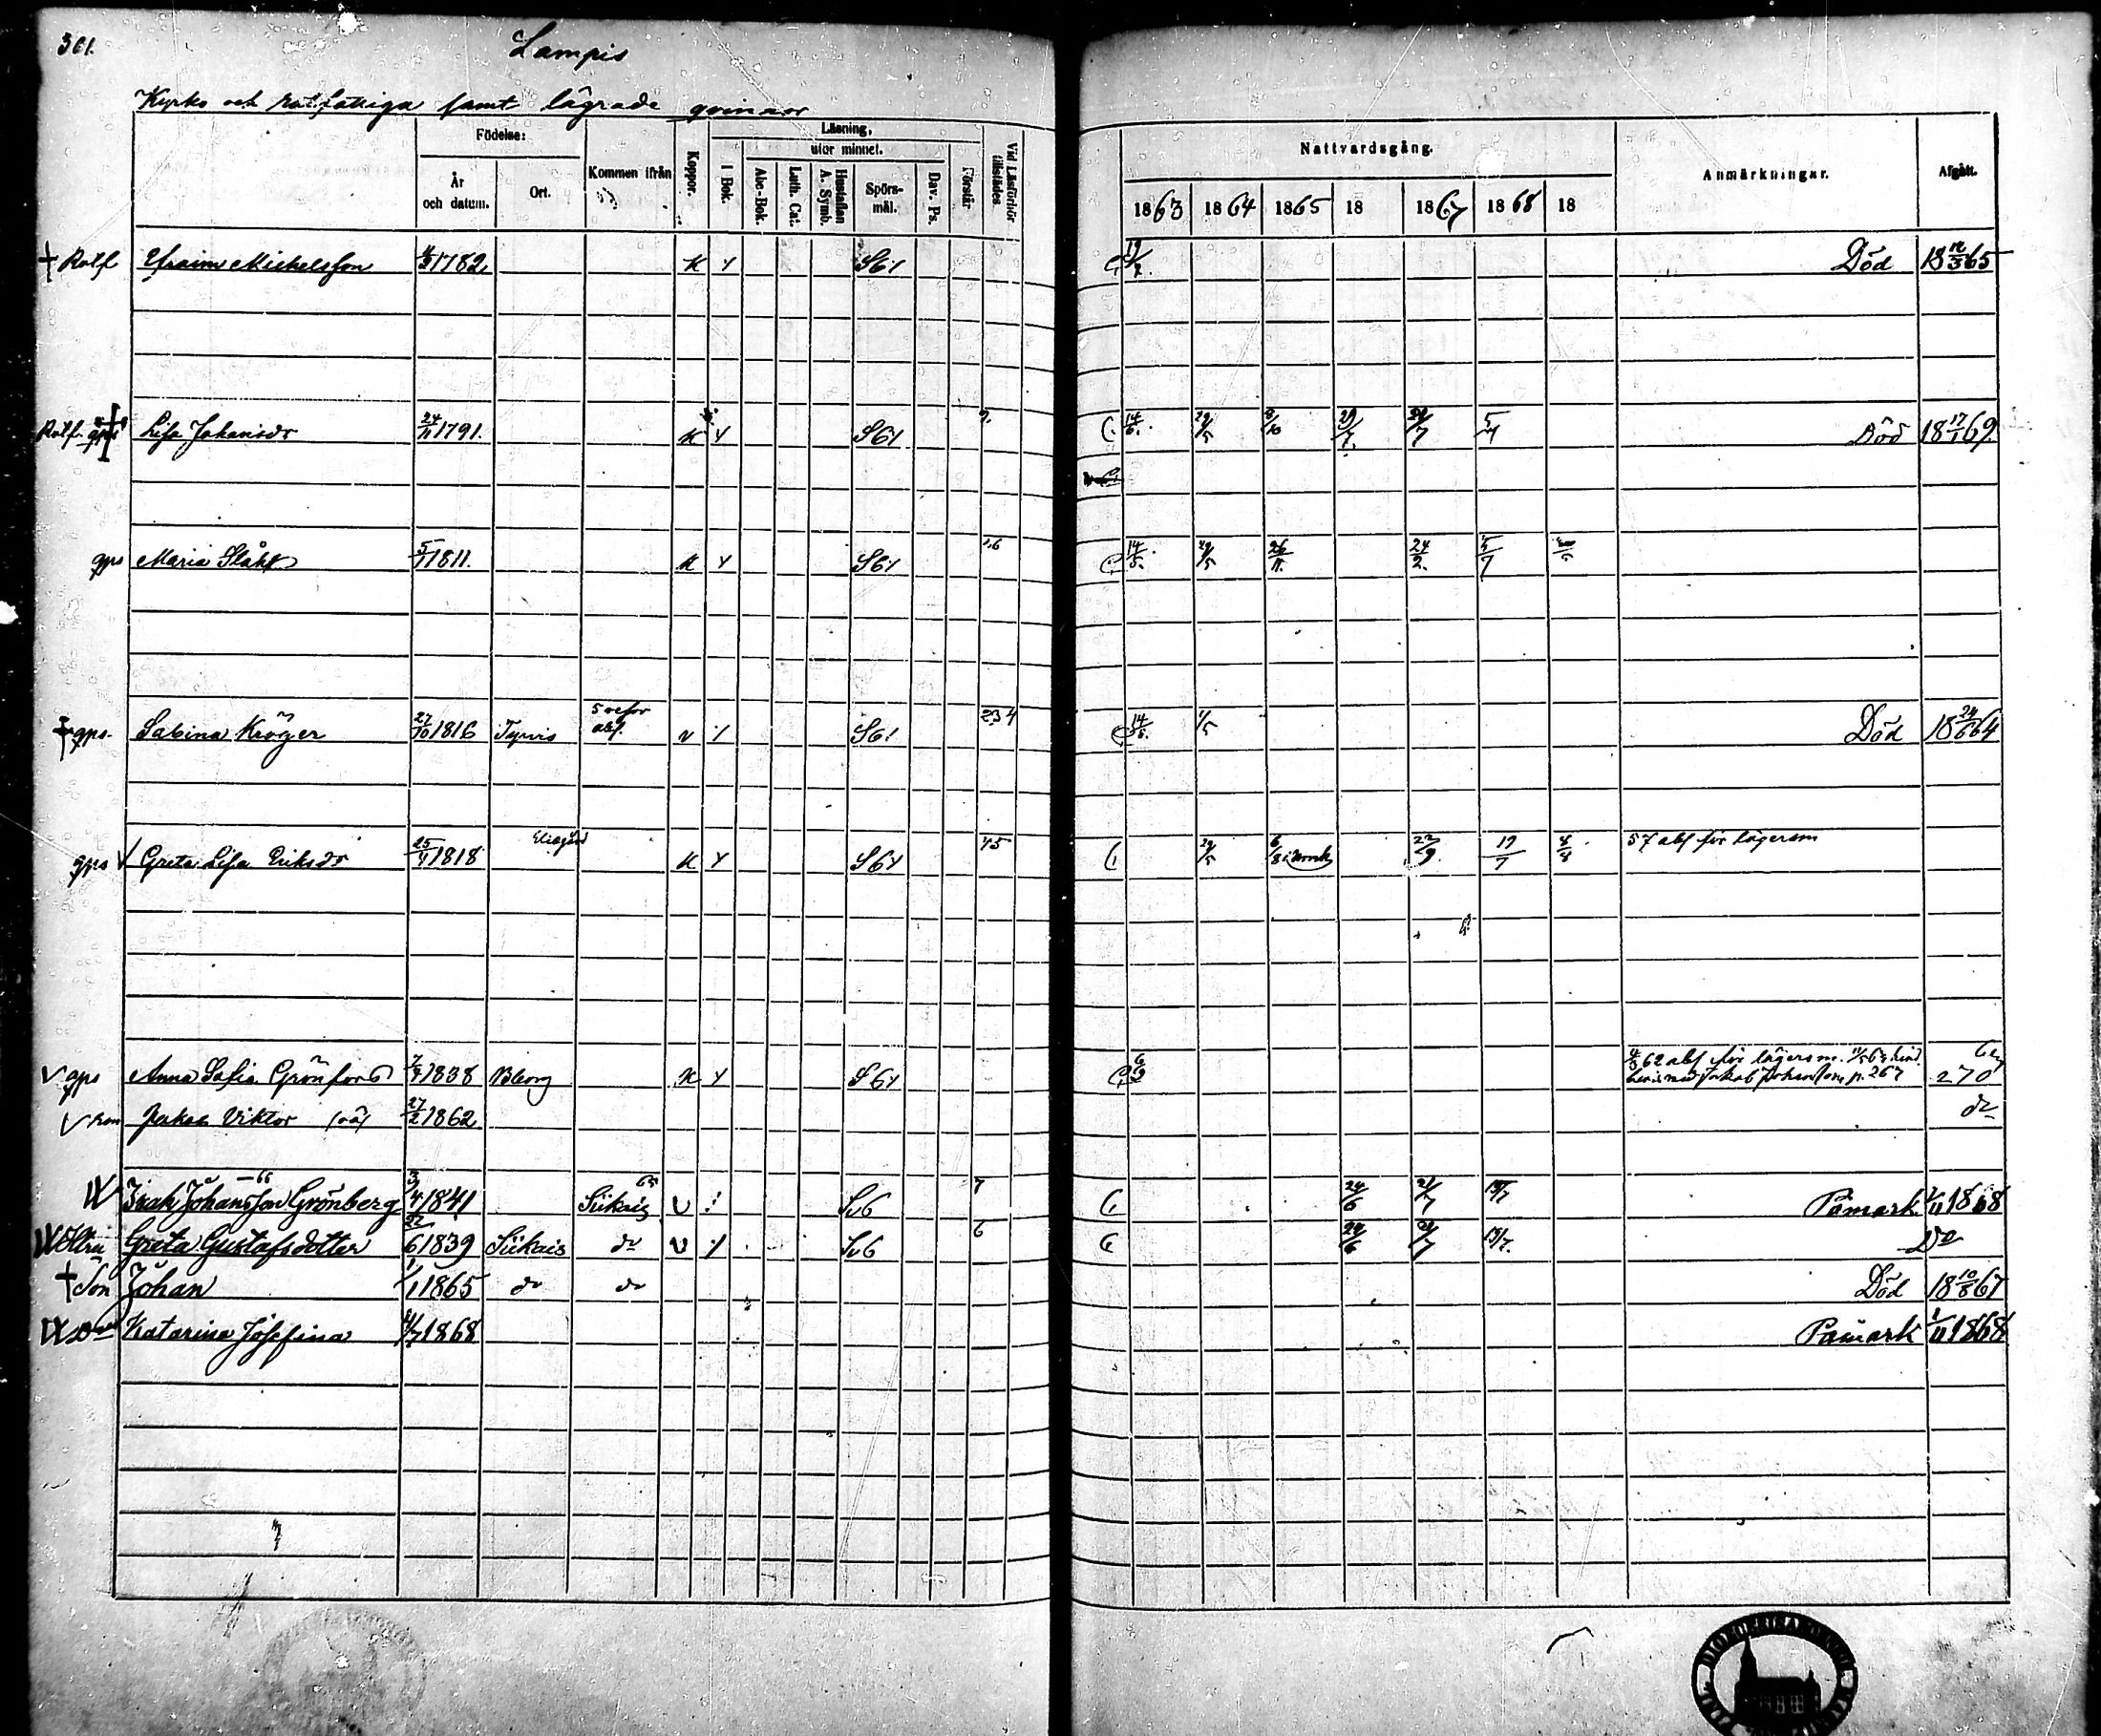 301.
Lampis
Kyrko och rotfattiga samt lägrade qvinnor
Födelse:
År och datum.
Ort.
Kommen ifrån
Koppor.
Läsning,
I Bok.
utor minnet.
Abc-Bok.
Luth. Cat.
Hustaflan A. Symb.
Spörs-mål.
Dav. Ps.
Förstår
Vid Läsförhör tillstädes.
Nattvardsgång.
1863 1864 1865 18 1867 1868 18
Anmärkningar.
Afgått.
† Rotf Efraim Michelsson 1782 K S61 19/7 Död 18 12/3 65
Rotf. Lisa Johansdr 24/11 1791. K S61 14/6 29/5 8/10 29/7 5/7 Död 18 17/1 69
qps Maria Slåhl 5/7 1811. K S61 14/5 29/5 26/11 24/2 5/7
† qps. Sabina Kröger 27/10 1816 Tyrvis v S61 234 14/5 1/5 Död 18 24/6 64
qps Greta Lisa Eriksdr 25/4 1818 K S61 45 29/5 6/8 22/9 19/7 57 abs för lägersm
qps Anna Sofia Grönfors 7/9 1838 Bborg K S61 6/9 4/5 62 abs för lägersm. Jakob Johansson p. 267 270
son Jakob Viktor (oä) 27/2 1862 do
Isak Johansson Grönberg 3/4 1841 Siikais 65 Sv6 7 24/6 21/7 19/7 Påmark 2/11 1868
Hustru Greta Gustafsdotter 22/6 1839 Siikais do Sv6 6 24/6 21/7 19/7. Do
† Son Johan 1/1 1865 do do Död 18 10/8 67
Katarina Josefina 4/7 1868 Påmark 2/11 1868